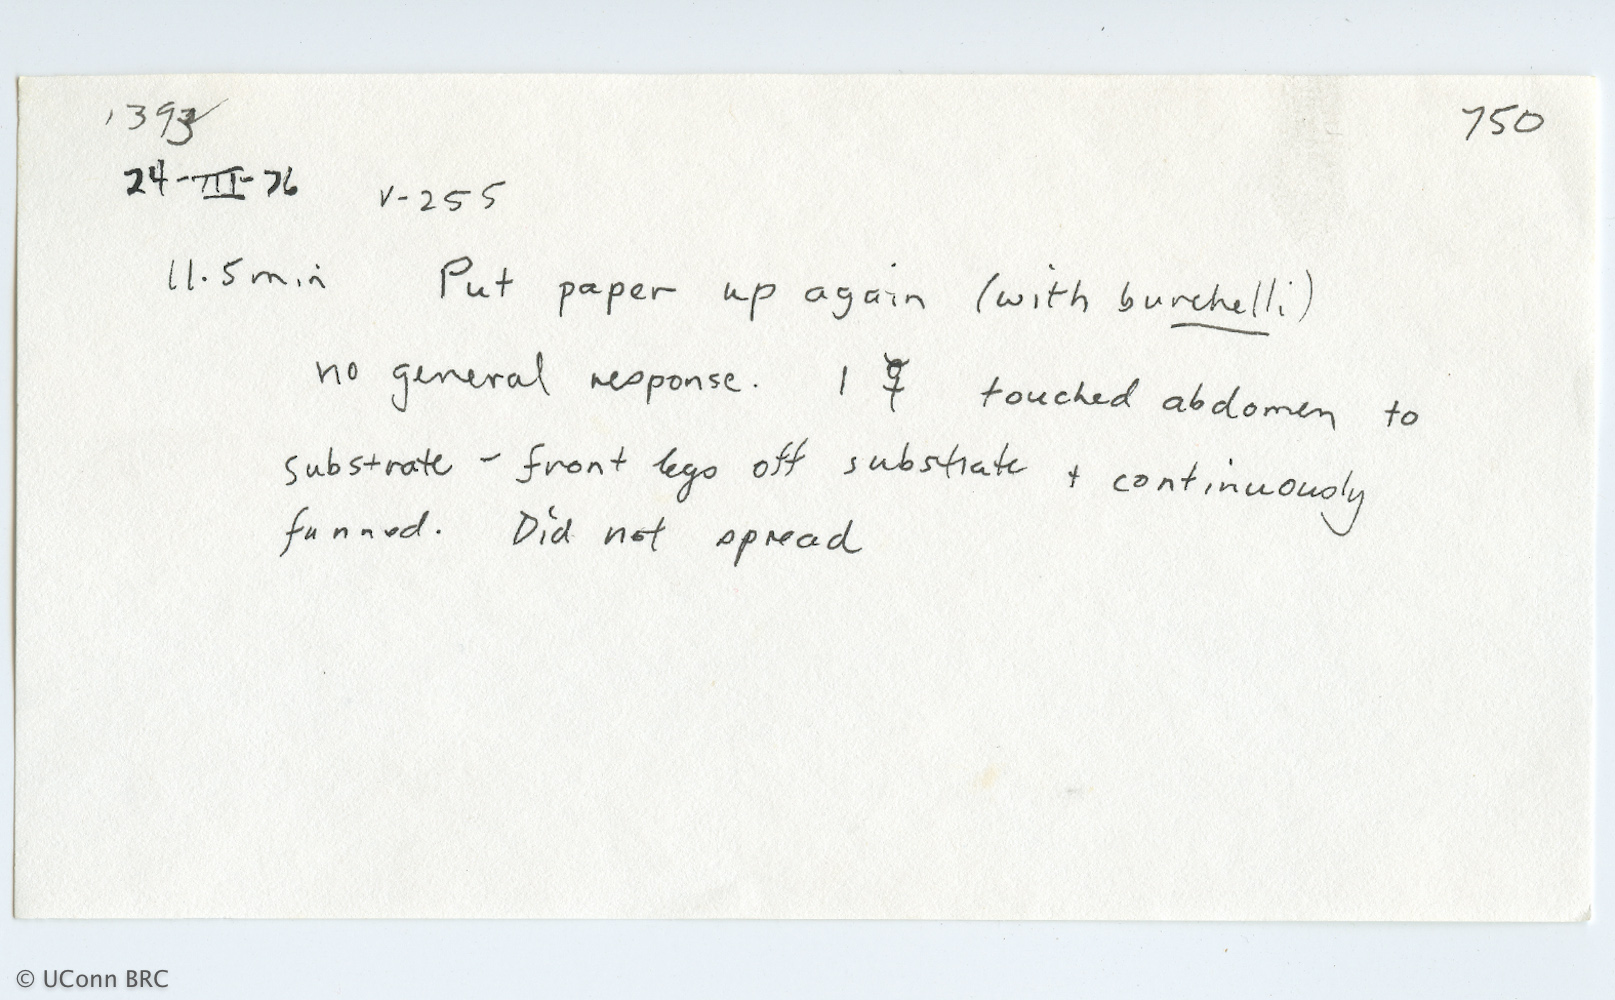 1393 750
24-III-76 V-255
11.5 min Put paper up again (with burchelli)
no general response. 1 ☿ touched abdomen to
substrate - front legs off substrate + continuously
fanned. Did not spread
© UConn BRC